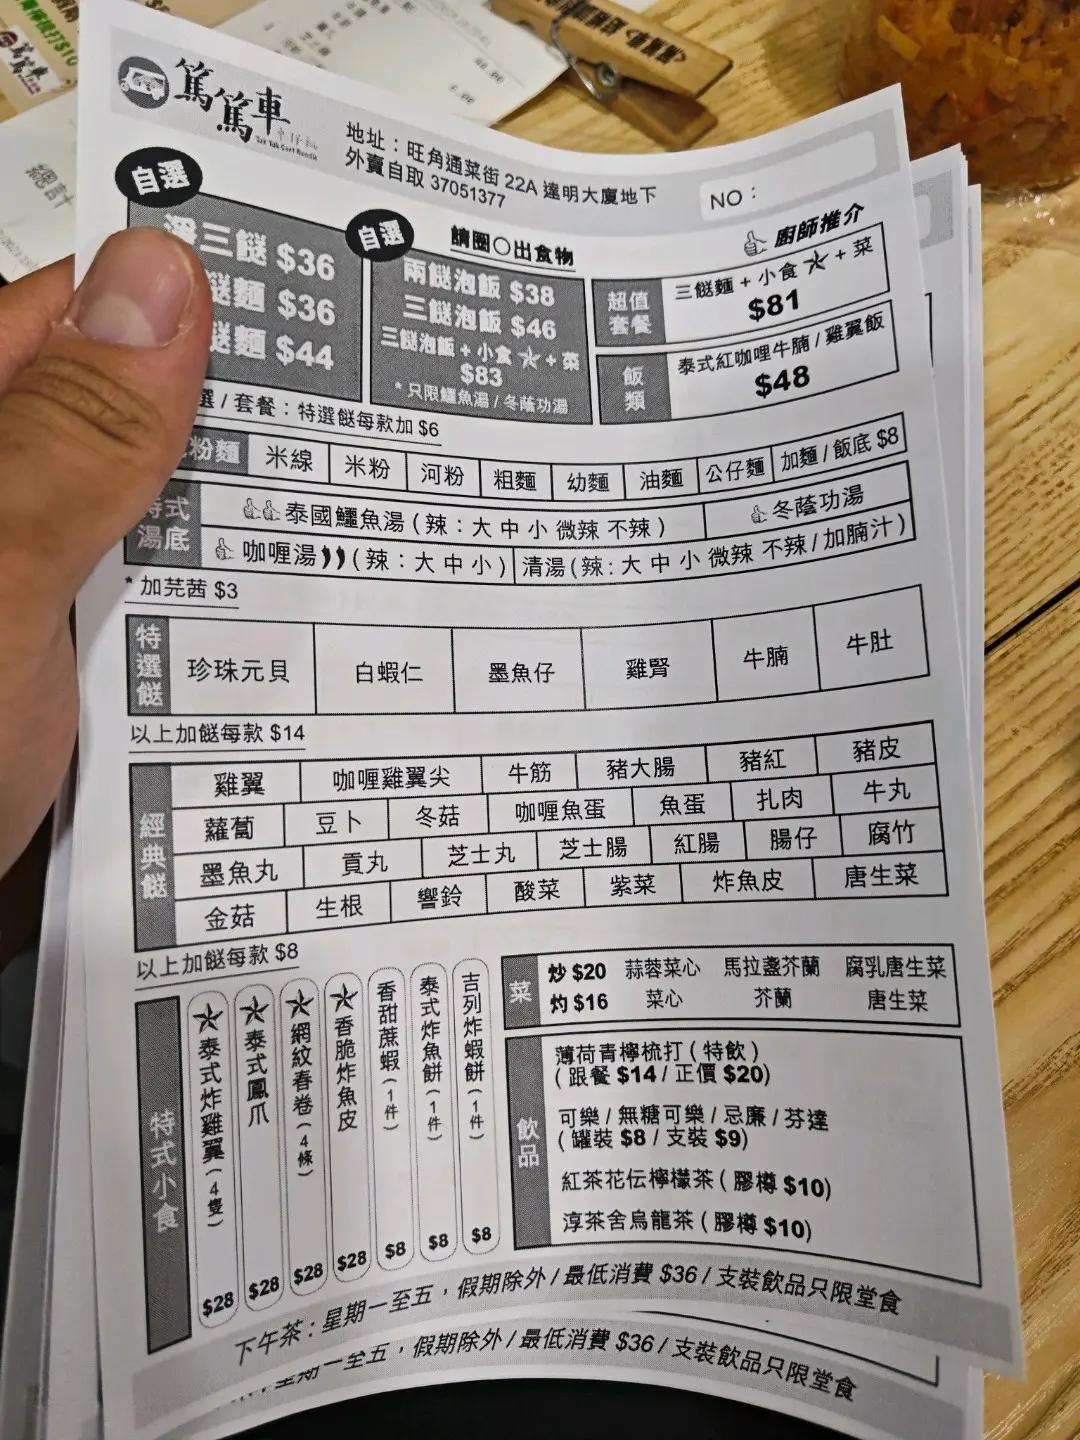 篤篤車
車仔麵
Tuk Tuk Cart Noodle
地址：旺角通菜街 22A 達明大廈地下
外賣自取 37051377
NO：
自選
三餸 $36
餸麵 $36
餸麵 $44
自選
請圈〇出食物
兩餸泡飯 $38
三餸泡飯 $46
三餸泡飯 + 小食 ★ + 菜
$83
* 只限鱷魚湯 / 冬蔭功湯
廚師推介
超值套餐
三餸麵 + 小食 ★ + 菜
$81
飯類
泰式紅咖哩牛腩 / 雞翼飯
$48
選 / 套餐：特選餸每款加 $6
粉麵 米線 米粉 河粉 粗麵 幼麵 油麵 公仔麵 加麵 / 飯底 $8
特式湯底
泰國鱷魚湯 ( 辣：大 中 小 微辣 不辣 ) 冬蔭功湯
咖喱湯 ( 辣：大 中 小 ) 清湯 ( 辣: 大 中 小 微辣 不辣 / 加腩汁 )
* 加芫茜 $3
特選餸
珍珠元貝 白蝦仁 墨魚仔 雞腎 牛腩 牛肚
以上加餸每款 $14
經典餸
雞翼 咖喱雞翼尖 牛筋 豬大腸 豬紅 豬皮
蘿蔔 豆卜 冬菇 咖喱魚蛋 魚蛋 扎肉 牛丸
墨魚丸 貢丸 芝士丸 芝士腸 紅腸 腸仔 腐竹
金菇 生根 響鈴 酸菜 紫菜 炸魚皮 唐生菜
以上加餸每款 $8
特式小食
★泰式炸雞翼 (4隻) $28
★泰式鳳爪 $28
★網紋春卷 (4條) $28
★香脆炸魚皮 $28
香甜蔗蝦 (1件) $8
泰式炸魚餅 (1件) $8
吉列炸蝦餅 (1件) $8
菜
炒 $20 蒜蓉菜心 馬拉盞芥蘭 腐乳唐生菜
灼 $16 菜心 芥蘭 唐生菜
飲品
薄荷青檸梳打 ( 特飲 )
( 跟餐 $14 / 正價 $20)
可樂 / 無糖可樂 / 忌廉 / 芬達
( 罐裝 $8 / 支裝 $9)
紅茶花伝檸檬茶 ( 膠樽 $10)
淳茶舍烏龍茶 ( 膠樽 $10)
下午茶 : 星期一至五，假期除外 / 最低消費 $36 / 支裝飲品只限堂食
星期一至五，假期除外 / 最低消費 $36 / 支裝飲品只限堂食
總計